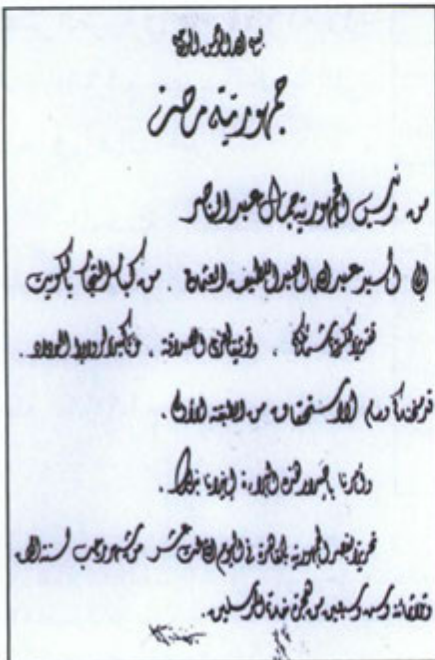 بسم الله الرحمن الرحيم
جمهورية مصر
من رئيس الجمهورية جمال عبد الناصر
إلى السيد عبد الله العبد اللطيف العثمان . من كبار التجار بالكويت
تقديرا لكريم شمائلكم . وتوثيقا لعرى الصداقة . وتمكينا لروابط الوداد .
قد منحناكم وسام الاستحقاق من الطبقة الأولى .
وأمرنا بإصدار هذه البراءة إيذانا بذلك .
تحريرا بقصر الجمهورية بالقاهرة في اليوم الثالث عشر من شهر رجب لسنة ألف
وثلاثمائة وخمس وسبعين من هجرة خاتم المرسلين .